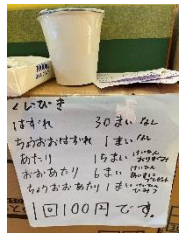 くじびき
はずれ 30まい なし
ちょおおおはずれ 1まい なし
あたり 15まい
おおあたり 6まい
ちょうおおあたり 1まい
1回100円です。